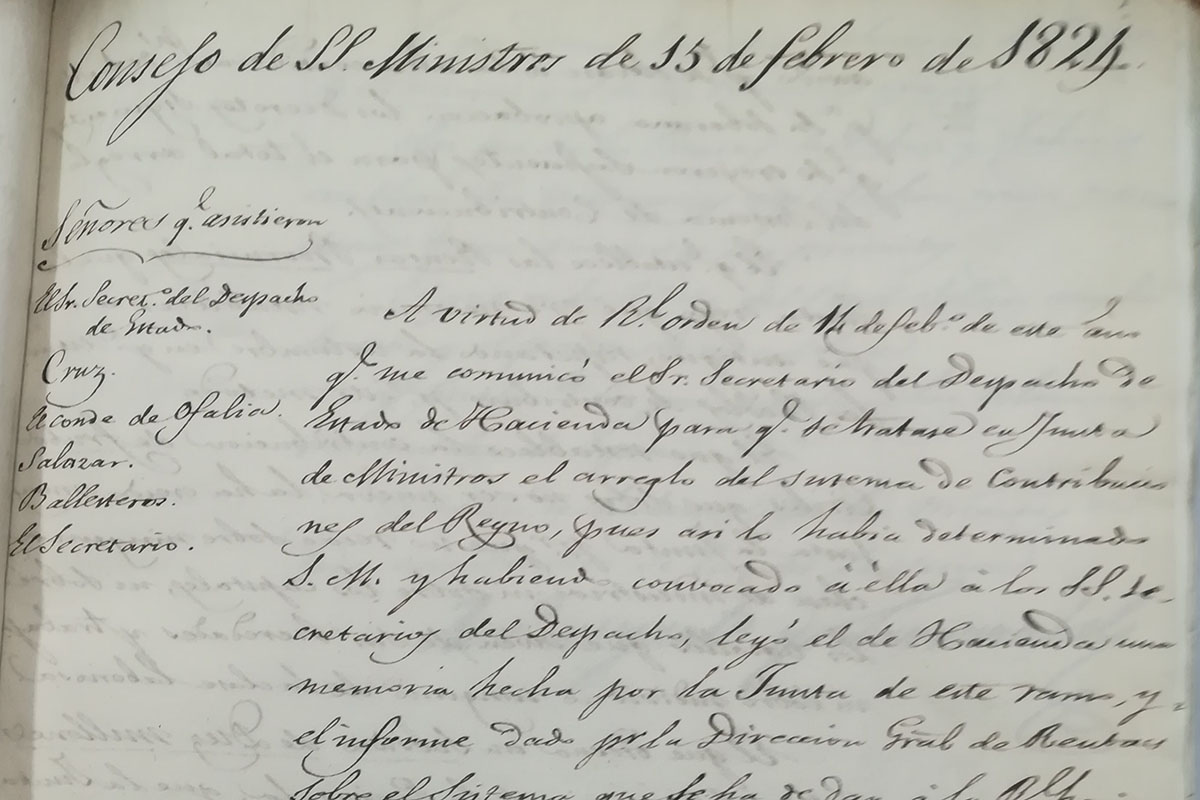 Consejo de SS. Ministros de 15 de febrero de 1824
Señores q.e asistieron
El Sr. Secret.o del Despacho
de Estado.
Cruz.
El conde de Ofalia.
Salazar.
Ballesteros.
El Secretario.
A virtud de R.l orden de 14 de feb.o de este año
q.e me comunicó el Sr. Secretario del Despacho de
Estado de Hacienda para q.e se tratase en Junta
de Ministros el arreglo del sistema de Contribucio
nes del Reyno, pues asi lo habia determinado
S. M. y habiendo convocado á ella á los SS. Se-
cretarios del Despacho, leyó el de Hacienda una
memoria hecha por la Junta de este ramo, y
el informe dado pr la Direccion Gral de Rentas
sobre el sistema que se ha de dar á la Rl